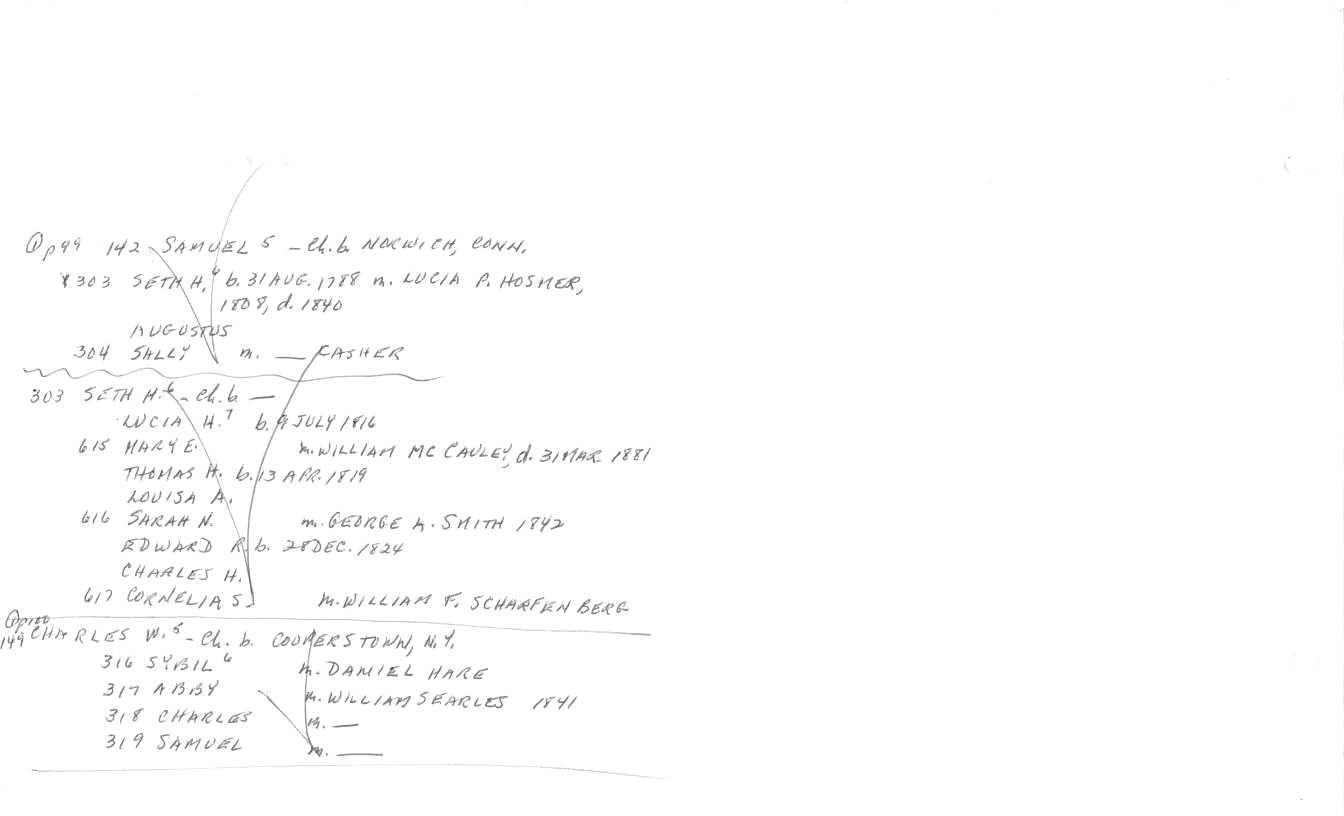 @ p 99 142 SAMUEL 5 - Ch. b. NORWICH, CONN.
X 303 SETH H.6 b. 31 AUG. 1788 m. LUCIA P. HOSMER,
1808, d. 1840
AUGUSTUS
304 SALLY m. — CASHER
303 SETH H.6 - Ch. b —
LUCIA H.7 b. 9 JULY 1816
615 MARY E. m. WILLIAM MC CAULEY, d. 31 MAR 1881
THOMAS H. b. 13 APR. 1819
LOUISA A.
616 SARAH N. m. GEORGE L. SMITH 1842
EDWARD R. b. 28 DEC. 1824
CHARLES H.
617 CORNELIA S. m. WILLIAM F. SCHARFENBERG
@ p100
149 CHARLES W.5 - Ch. b. COOPERSTOWN, N.Y.
316 SYBIL 6 m. DANIEL HARE
317 ABBY m. WILLIAM SEARLES 1841
318 CHARLES m. —
319 SAMUEL m. —